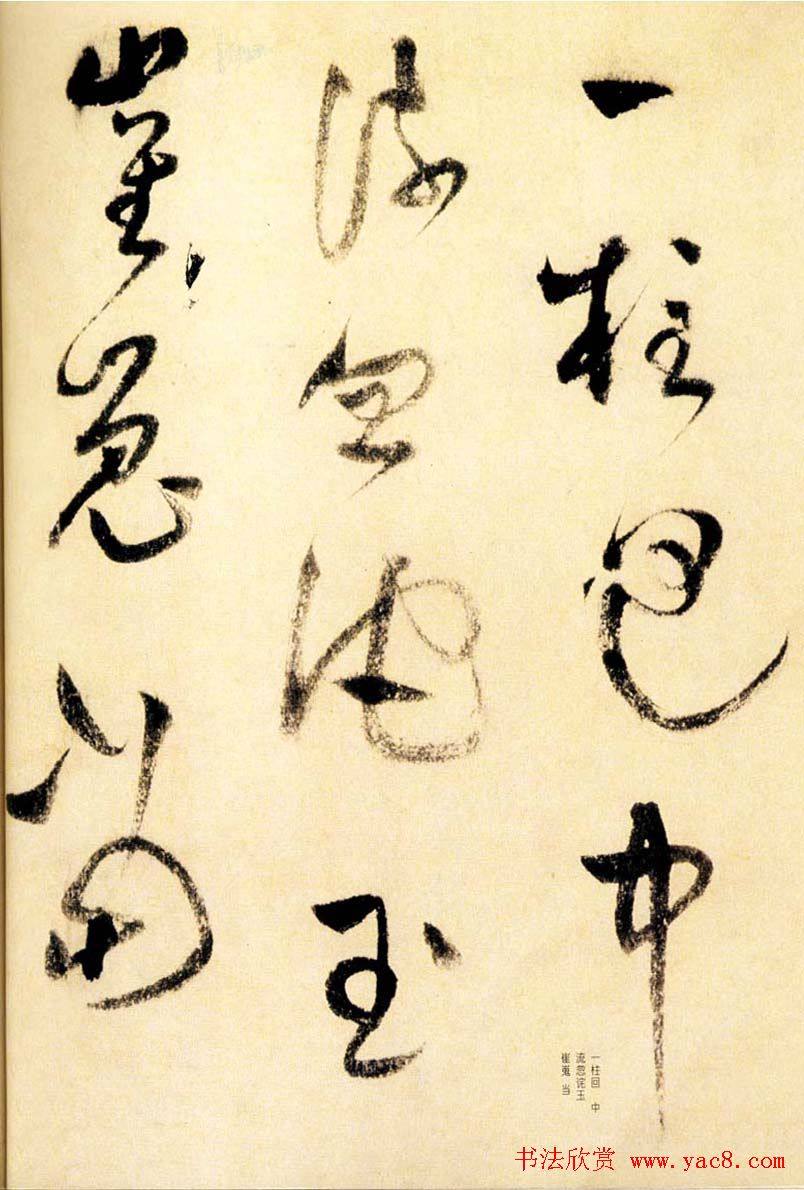 一柱迴中
流忽詫玉
崔嵬當
一柱回 中
流忽诧玉
崔嵬 当
书法欣赏 www.yac8.com